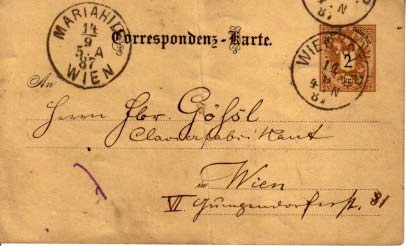 MARIAHILF
14
9
5.A
87
WIEN
Correspondenz-Karte.
WIEN
2
14
4.N
87
An
Herrn Gössl
Clavierfabrikant
in Wien
VI Gumpendorferstr. 81